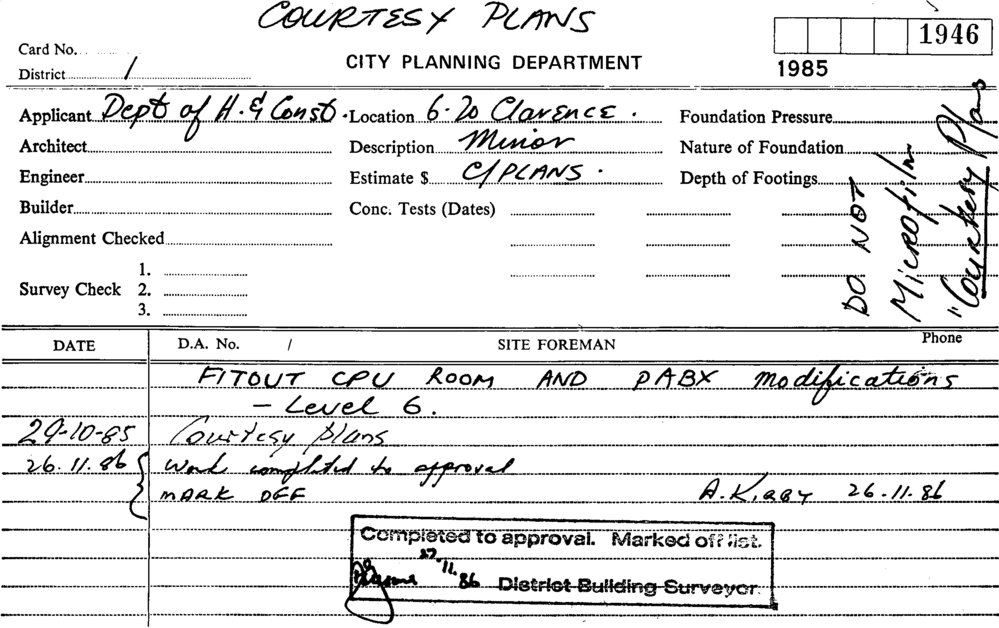 COURTESY PLANS
1946
Card No.
CITY PLANNING DEPARTMENT
1985
District 1
Applicant Dept of H. & Const. Location 6-20 Clarence. Foundation Pressure
Architect Description Minor Nature of Foundation
Engineer Estimate $ C/PLANS. Depth of Footings
Builder Conc. Tests (Dates)
Alignment Checked
1.
Survey Check 2.
3.
DO NOT
Microfilm
"Courtesy Plans
DATE D.A. No. / SITE FOREMAN Phone
FITOUT CPU ROOM AND PABX modifications
- Level 6.
29-10-85 Courtesy plans
26.11.86 Work completed to approval
MARK OFF A. KIRBY 26.11.86
Completed to approval. Marked off list.
27.11.86 District Building Surveyor